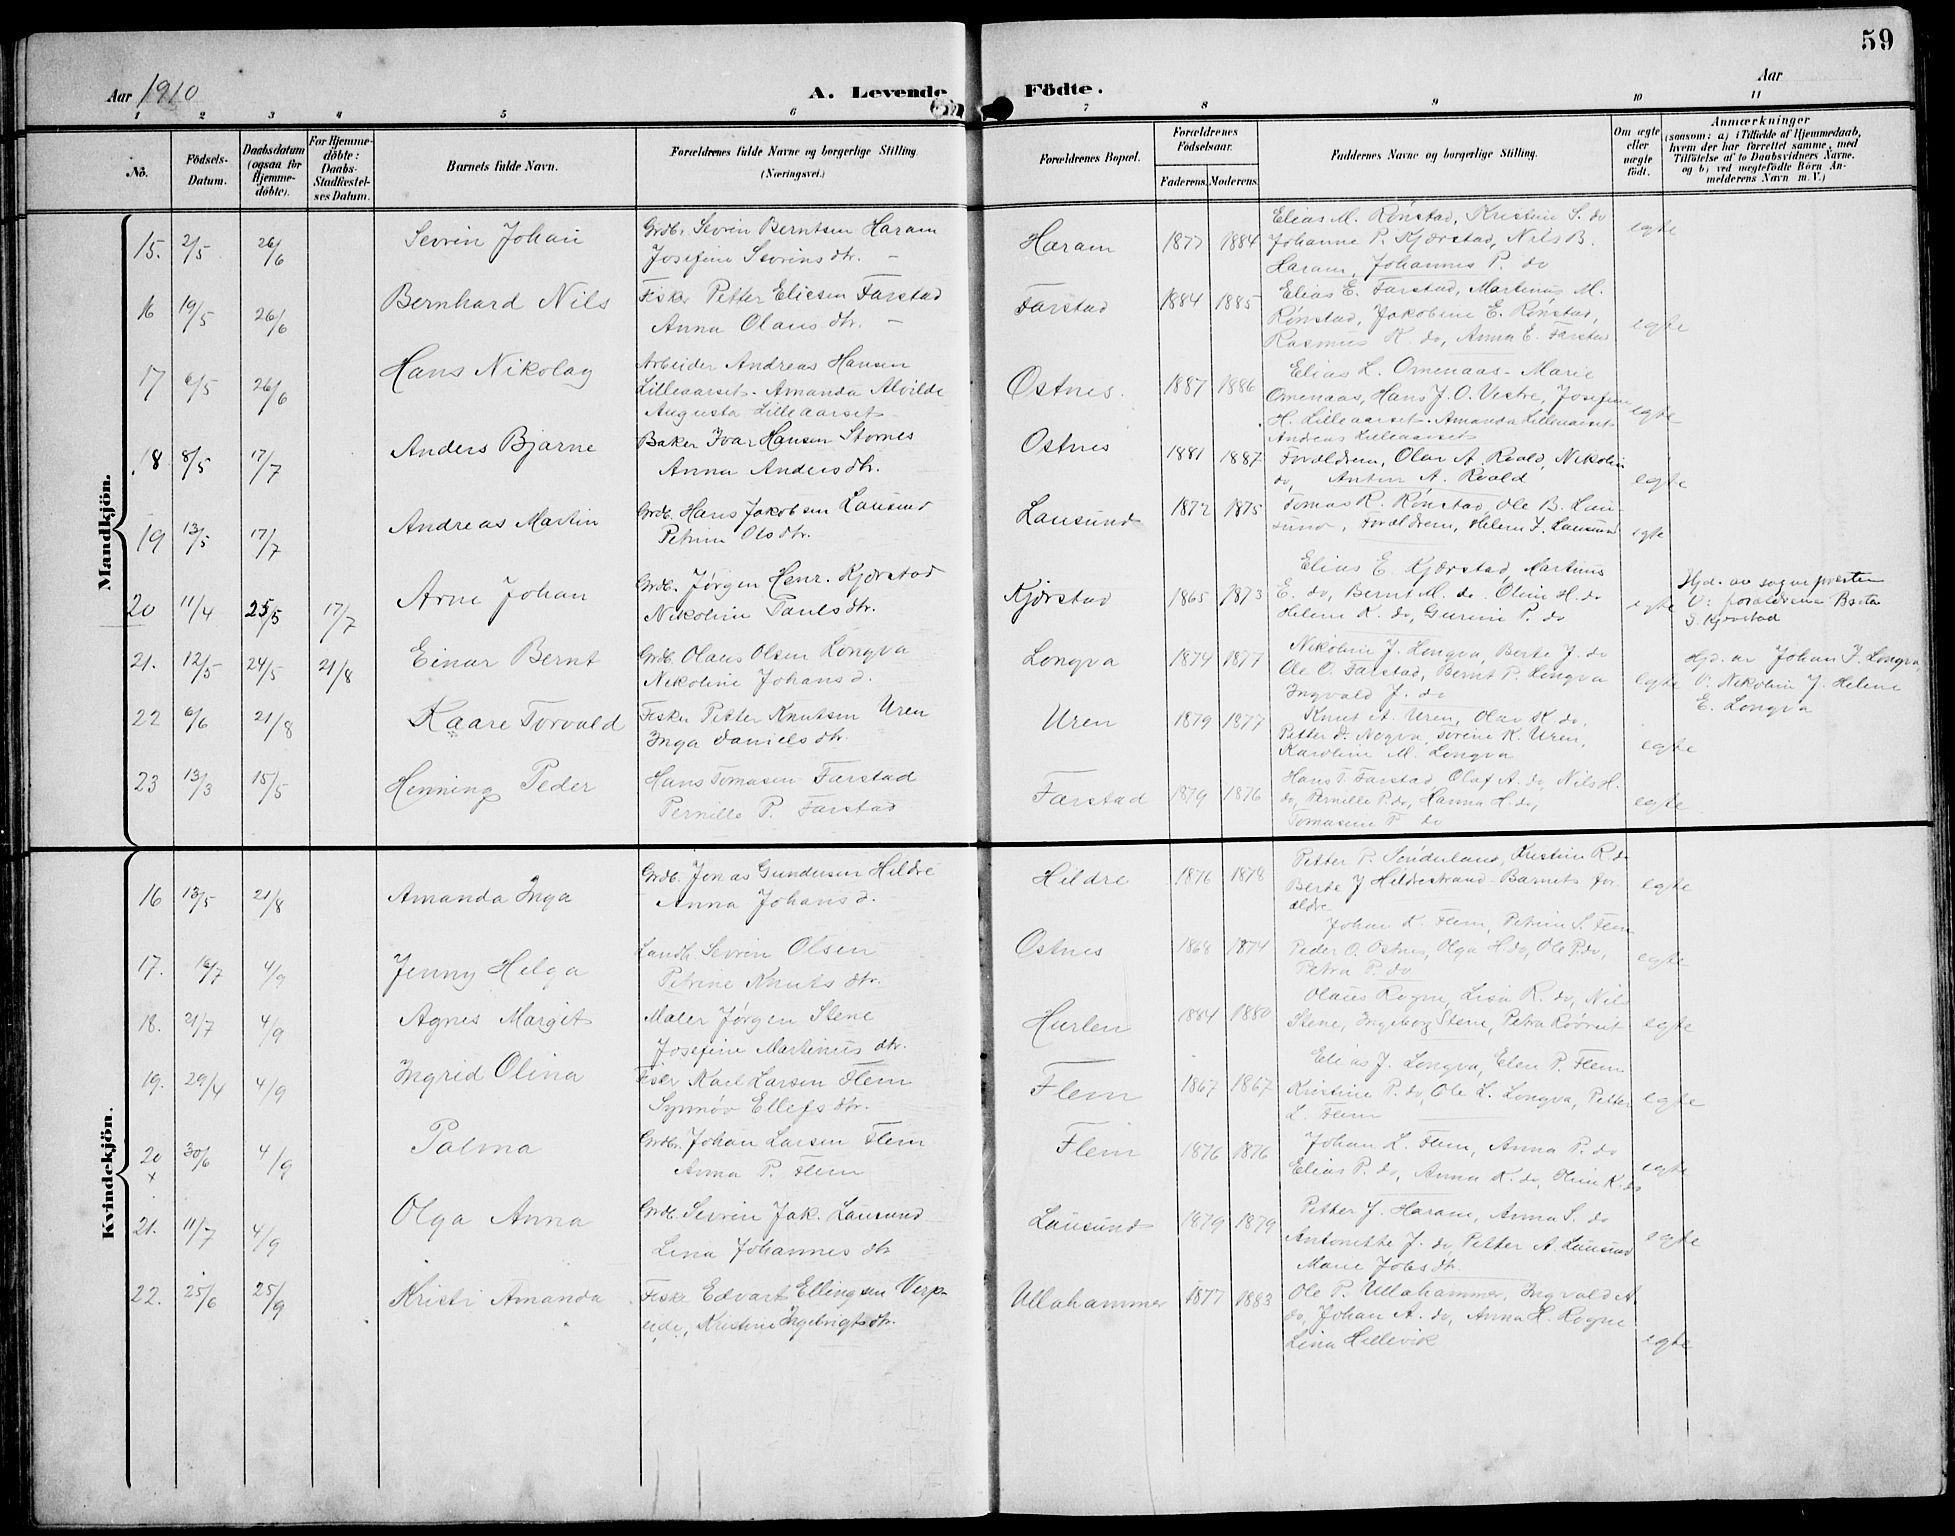 59
Aar 1910
A. Levende
Födte.
Aar
1 2 3 4 5 6 7 8 9 10 11
No.
Födsels-Datum.
Daabsdatum (ogsaa for Hjemme-döbte).
For Hjemme-döbte: Daabs-Stadfæstel-ses Datum.
Barnets fulde Navn.
Forældrenes fulde Navne og borgerlige Stilling.
(Næringsvei.)
Forældrenes Bopæl.
Forældrenes Födselsaar.
Faderens. Moderens.
Faddernes Navne og borgerlige Stilling.
Om ægte eller uægte födt.
Anmærkninger
(saasom: a) i Tilfælde af Hjemmedaab, hvem der har forrettet samme, med Tilföielse af to Daabsvidners Navne. og b) ved uægtefödte Börn An-melderens Navn m. V.)
Mandkjön.
15. 2/5 26/6 Sevrin Johan
Grdb. Sevrin Berntsen Haram
Josefine Sevrinsdtr. -
Haram 1877 1884
Elias M. Rønstad, Kristine S. do
Johanne P. Kjærstad, Nils B.
Haram, Johannes P. do
egte
16 19/5 26/6 Bernhard Nils
Fisker Petter Eliesen Farstad
Anna Olausdtr. -
Farstad 1884 1885
Elias E. Farstad, Martinus M.
Rønstad, Jakobine E. Rønstad,
Rasmus K. do, Anna E. Farstad
egte
17 6/5 26/6 Hans Nikolay
Arbeider Andreas Hansen
Lilleaarset. Amanda Alvilde
Augusta Lilleaarset
Ostnes. 1887 1886
Elias L. Omenaas - Marie
Omenaas, Hans J. O. Vestre, Josefine
H. Lilleaarset. Amanda Lilleaarset
Andreas Lilleaarset
egte
18 8/5 17/7 Anders Bjarne
Baker Ivar Hansen Stornes
Anna Andersdtr.
Ostnes 1881 1887
Forældrene, Olav A. Roald, Nikoline
do, Anton A. Roald
egte
19 13/5 17/7 Andreas Martin
Grdb. Hans Jakobsen Lausund
Petrine Olsdtr.
Lausund 1872 1875
Tomas K. Rønstad, Ole B. Lau
sund, Forældrene, Helene J. Lausund
egte
20 11/4 25/5 17/7 Arne Johan
Grdb. Jørgen Henr. Kjærstad
Nikoline Paulsdtr.
Kjærstad 1865 1873
Elias E. Kjærstad, Martinus
E. do, Bernt M. do. Oline H. do
Helene K. do, Gurine P. do
egte
Hjd. av sognepresten
V: forældrene Berte
S. Kjærstad
21. 12/5 24/5 21/8 Einar Bernt
Grdb. Olaus Olsen Longva
Nikoline Johansd.
Longva 1874 1877
Nikoline J. Longva, Berte J. do
Ole O. Farstad, Bernt P. Longva
Ingvald J. do
egte
Hjd. av Johan J. Longva
V: Nikoline J. Helene
E. Longva
22 6/6 21/8 Kaare Torvald
Fisker Petter Knutsen Uren
Inga Danielsdtr.
Uren 1879 1877
Knut A. Uren, Olav K. do.
Petter D. Nogva, Sørine K. Uren,
Karoline M. Longva
egte
23 13/3 15/5 Henning Peder
Hans Tomasen Farstad
Pernille P. Farstad
Farstad 1879 1876
Hans T. Farstad, Olaf A. do, Nils H.
do, Pernille P. do, Hanna H. do,
Tomasine T. do
egte
Kvindekjön.
16 13/5 21/8 Amanda Inga
Grdb. Jonas Gundersen Hildre
Anna Johansd.
Hildre 1876 1878
Petter P. Sønderland, Kristine R. do
Berte J Hildrestrand - Barnets for
ældre
egte
17. 16/7 4/9 Jenny Helga
Landh. Sevrin Olsen
Petrine Knutsdtr.
Ostnes 1868 1874
Johan K. Flem, Petrine S. Flem
Peder O. Ostnes, Olga H. do, Ole P. do,
Petra P. do
egte
18. 21/7 4/9 Agnes Margit
Maler Jørgen Stene
Josefine Martinusdtr.
Hurlen 1884 1880
Olaus Rogne, Lisa R. do, Nils
Stene, Ingeborg Stene, Petra Røvrset
egte
19. 29/4 4/9 Ingrid Olina
Fisker Karl Larsen Flem
Synnøv Ellefsdtr.
Flem 1867 1867
Elias J. Longva, Elen P. Flem
Kristine P. do, Ole L. Longva, Petter
L. Flem
egte
20 30/6 4/9 Palma
x
Grdbr. Johan Larsen Flem
Anna P. Flem
Flem 1876 1876
Johan L. Flem, Anna P. do
Elias P. do, Anna K. do, Oline K. do
egte
21. 11/7 4/9 Olga Anna
Grdb. Sevrin Jak. Lausund
Lina Johannesdtr
Lausund 1879 1879
Petter J. Haram, Anna S. do
Antonette J. do, Petter A. Lausund
Marie Jobsdtr.
egte
22. 25/6 25/9 Kristi Amanda
Fisker Edvart Ellingsen Verp-
eide, Kristine Ingebrigtsdtr.
Ullahammer 1877 1883
Ole P. Ullahammer, Ingvald A.
do, Johan A. do, Anna H. Rogne
Lina Hellevik
egte